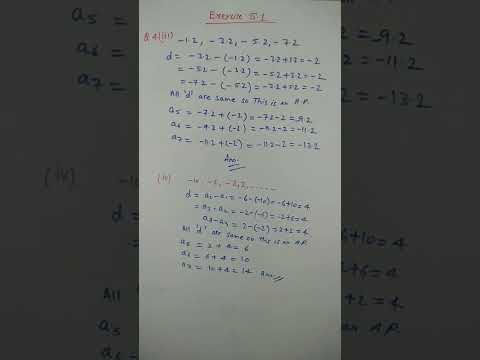 Exercise 5.1
Q.4(iii) -1.2, -3.2, -5.2, -7.2
d = -3.2 -(-1.2) = -3.2+1.2 = -2
= -5.2 - (-3.2) = -5.2+3.2 = -2
= -7.2 - (-5.2) = -7.2+5.2 = -2
All 'd' are same so This is an A.P.
a5 = -7.2 + (-2) = -7.2-2 = 9.2
a6 = -9.2 + (-2) = -9.2-2 = -11.2
a7 = -11.2 + (-2) = -11.2-2 = -13.2
Ans.
(iv) -10, -6, -2, 2, ......
d = a2 - a1 = -6-(-10) = -6+10 = 4
= a3 - a2 = -2-(-6) = -2+6 = 4
2-(-2) = 2+2 = 4
All 'd' are same so this is an A.P.
a5 = 2+4 = 6
a6 = 6+4 = 10
a7 = 10+4 = 14 Ans.